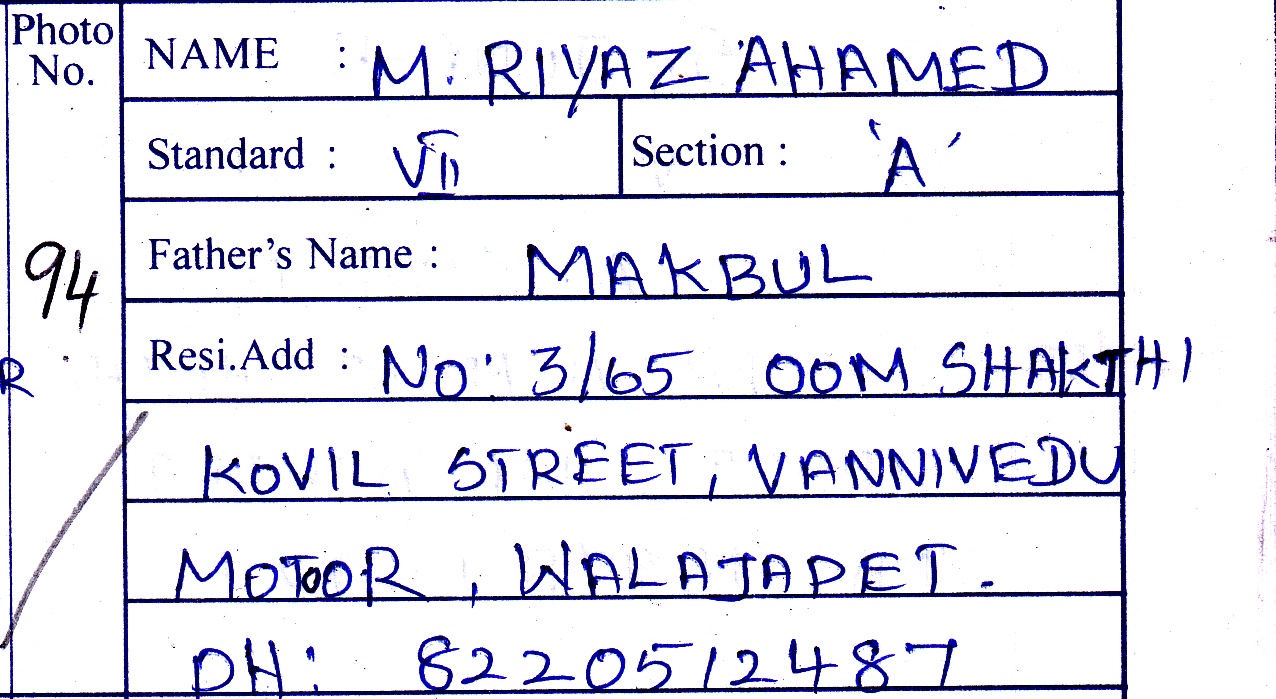 Photo No.
94
R
NAME : M. RIYAZ AHAMED
Standard : VII Section : 'A'
Father's Name : MAKBUL
Resi.Add : No: 3/65 OOM SHAKTHI
KOVIL STREET, VANNIVEDU
MOTOOR, WALAJAPET.
PH: 8220512487